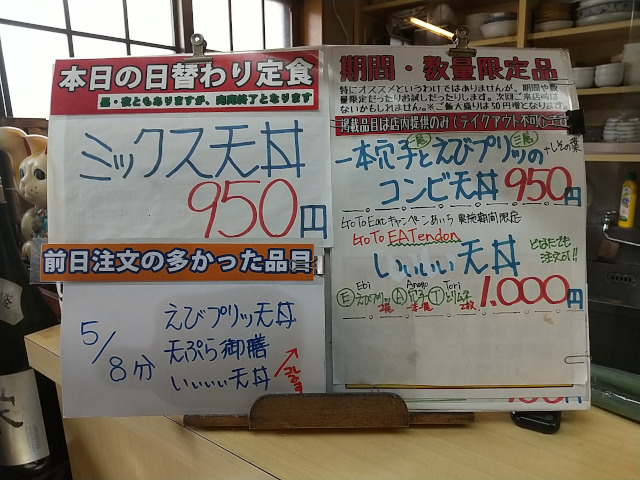 本日の日替わり定食
昼・夜ともありますが、売り切れ終了となります
ミックス天丼
950円
前日注文の多かった品目
5/8分
えびプリッツ天丼
天ぷら御膳
いいいい天丼
コレです
期間・数量限定品
特にオススメというわけではありませんが、期間や数
量限定だったりお試しだったりします。次回ご来店時は
ないかもしれません。※ご飯大盛りは50円増となります。
掲載品目は店内提供のみ(テイクアウト不可)です
一本穴子とえびプリッツの
+しその葉
コンビ天丼950円
Go To Eatキャンペーンあいち 東海期間限定
Go To EATendon
いいいい天丼
どなたでも
注文可!!
Ebi Anago Tori
Eえびプリッツ A穴子 Tとりムネ
1,000円